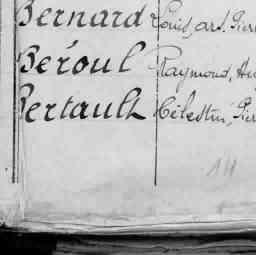 Bernard Louis, art. Pier
Béroul Raymond,
Bertault Célestin, Pier